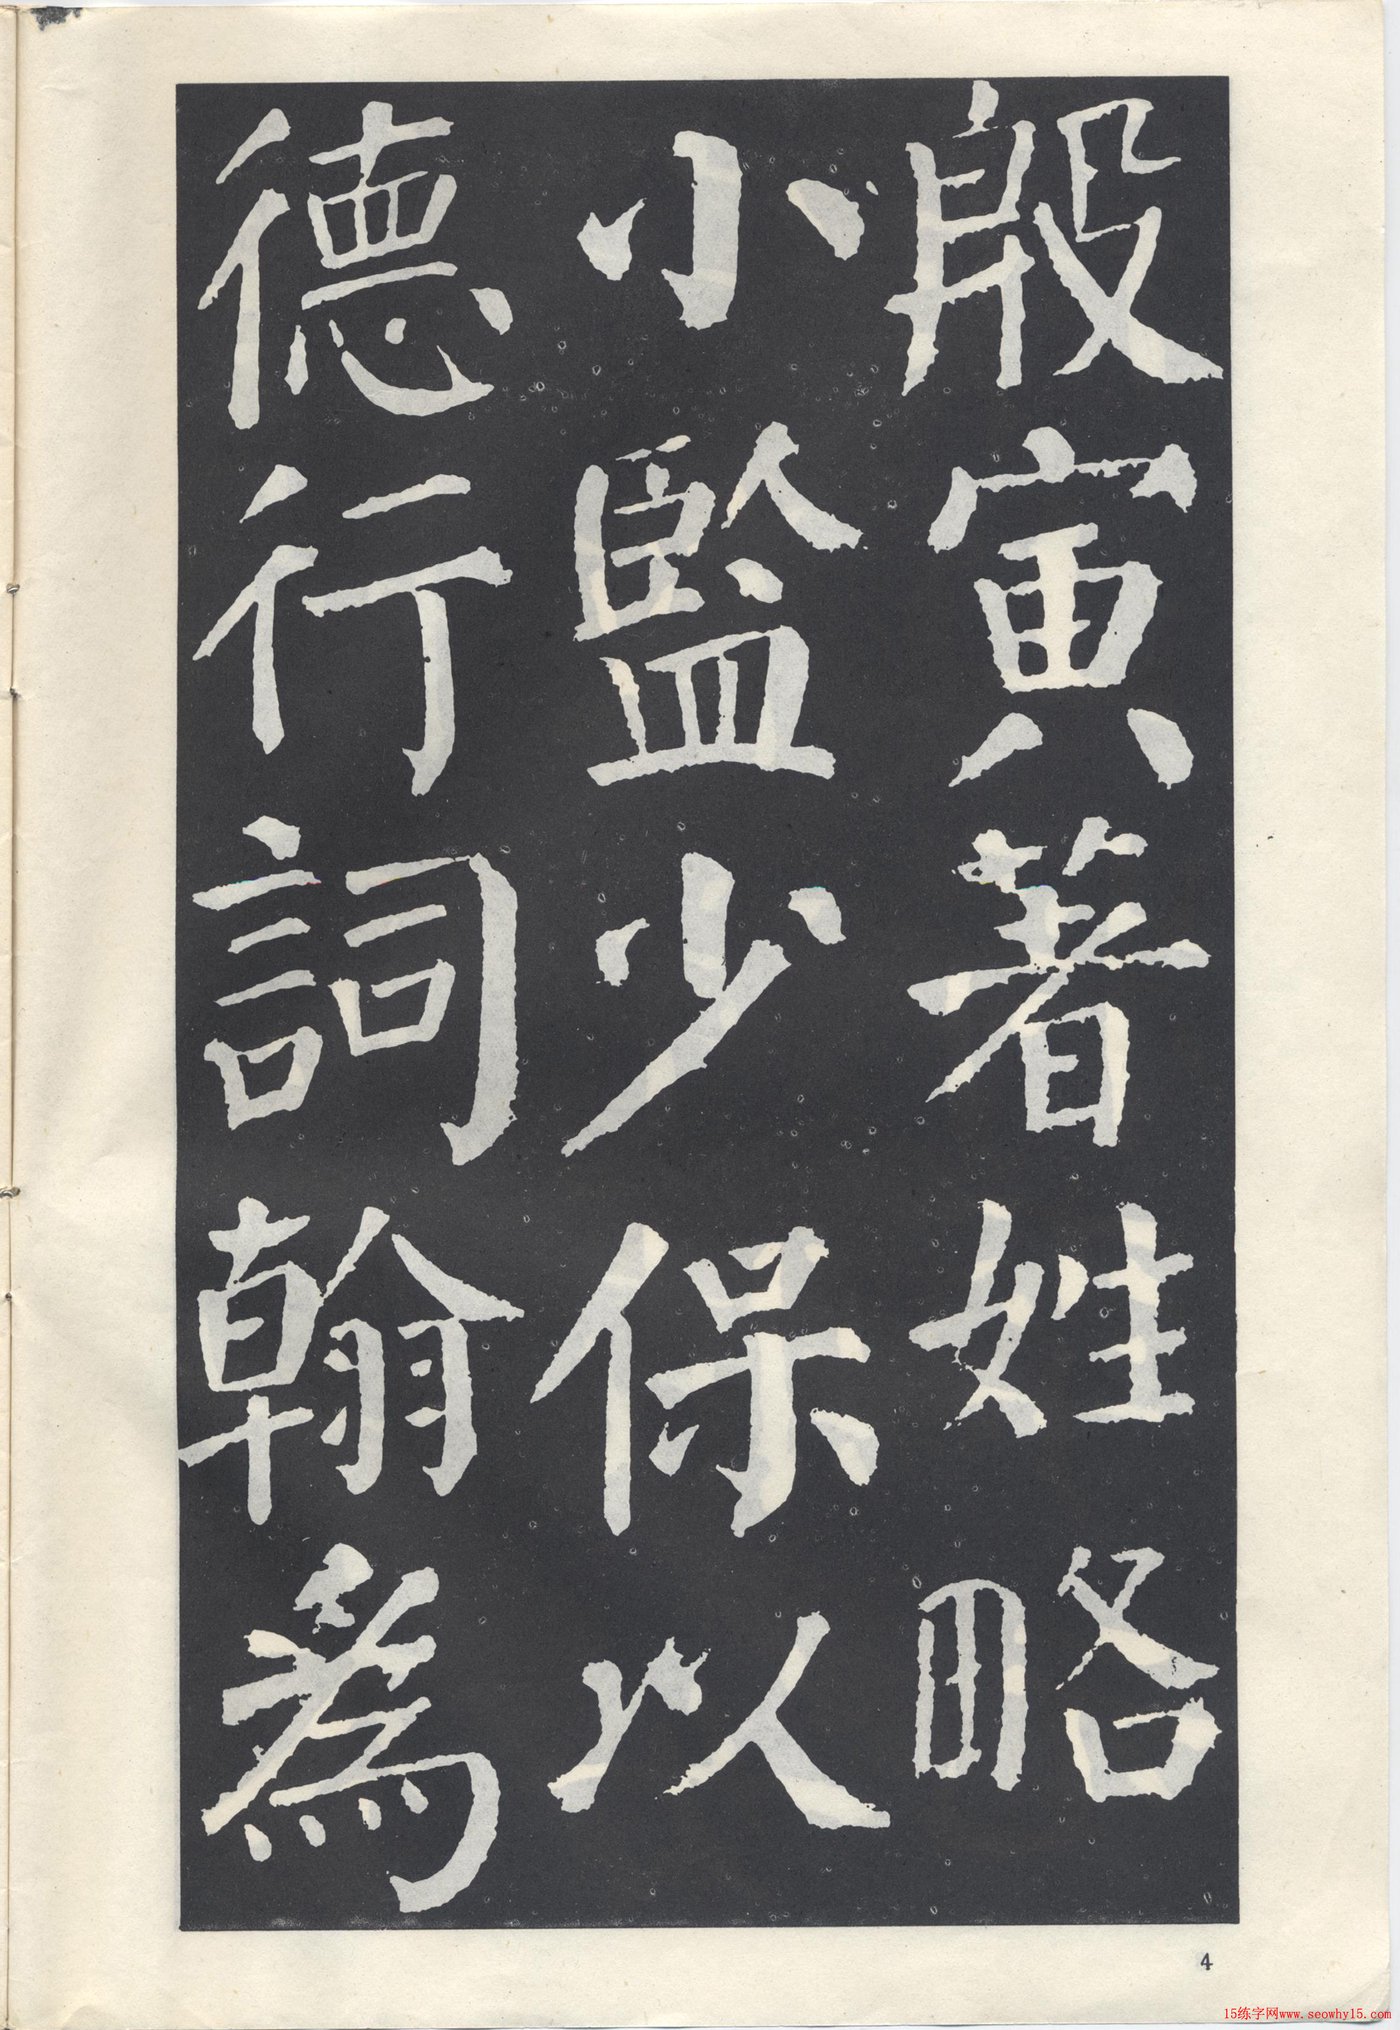 殷寅著姓略
小監少保以
德行詞翰為
4
15练字网www.seowhy15.com